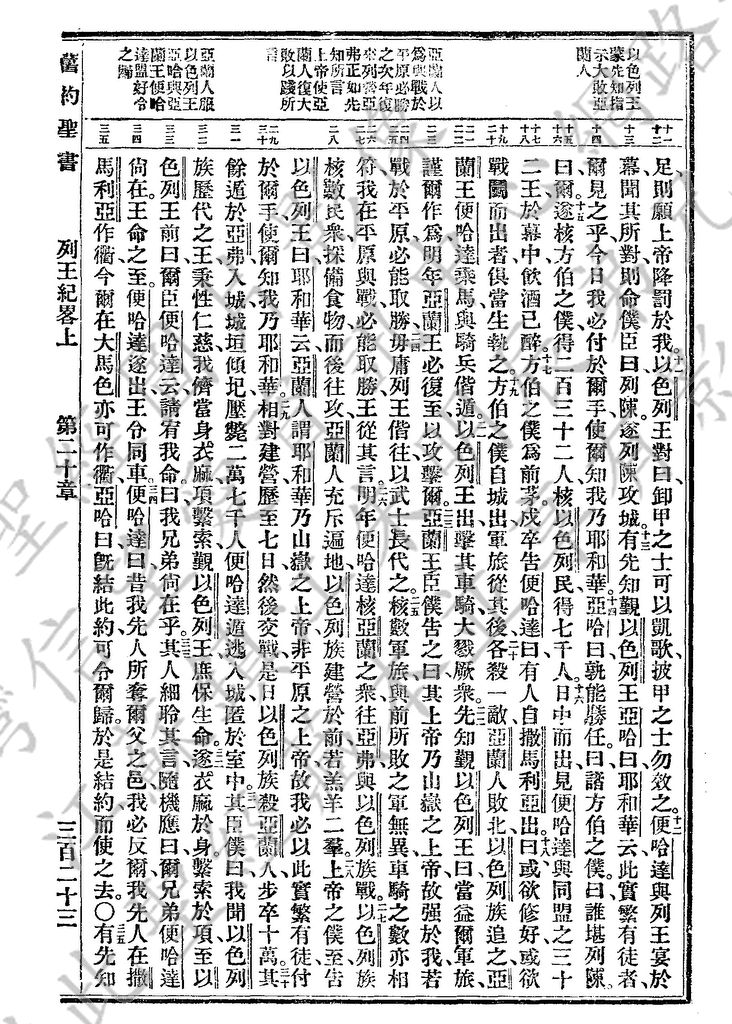 以色列王
蒙先知指
示大敗亞
蘭人
亞蘭人以
爲與戰於
平原必勝
之次年復
來列營亞
弗正如先
知所言
上帝使亞
蘭人復大
敗以踐所
言
亞蘭人服
以色列王
亞哈與亞
蘭王便哈
達盟好令
之歸
足則願上帝降罰於我以色列王對曰卸甲之士可以凱歌披甲之士勿效之便哈達與列王宴於
幕聞其所對則命僕臣曰列陳遂列陳攻城有先知覲以色列王亞哈曰耶和華云此實繁有徒者
爾見之乎今日我必付於爾手使爾知我乃耶和華亞哈曰孰能勝任曰諸方伯之僕曰誰堪列陳
曰爾遂核方伯之僕得二百三十二人核以色列民得七千人日中而出見便哈達與同盟之三十
二王於幕中飲酒已醉方伯之僕爲前茅戍卒告便哈達曰有人自撒馬利亞出曰或欲修好或欲
戰鬭而出者俱當生執之方伯之僕自城出軍旅從其後各殺一敵亞蘭人敗北以色列族追之亞
蘭王便哈達乘馬與騎兵偕遁以色列王出擊其車騎大戮厥衆先知覲以色列王曰當益爾軍旅
謹爾作爲明年亞蘭王必復至以攻擊爾亞蘭王臣僕告之曰其上帝乃山嶽之上帝故强於我若
戰於平原必能取勝毋庸列王偕往以武士長代之核數軍旅與前所敗之軍無異車騎之數亦相
符我在平原與戰必能取勝王從其言明年便哈達核亞蘭之衆往亞弗與以色列族戰以色列族
核數民衆採備食物而後往攻亞蘭人充斥遍地以色列族建營於前若羔羊二羣上帝之僕至告
以色列王曰耶和華云亞蘭人謂耶和華乃山嶽之上帝非平原之上帝故我必以此實繁有徒付
於爾手使爾知我乃耶和華相對建營歷至七日然後交戰是日以色列族殺亞蘭人步卒十萬其
餘遁於亞弗入城城垣傾圮壓斃二萬七千人便哈達遁逃入城匿於室中其臣僕曰我聞以色列
族歷代之王秉性仁慈我儕當身衣麻項繫索觀以色列王庶保生命遂衣麻於身繫索於項至以
色列王前曰爾臣便哈達云請宥我命曰我兄弟尙在乎其人細聆其言隨機應曰爾兄弟便哈達
尙在王命之至便哈達遂出王令同車便哈達曰昔我先人所奪爾父之邑我必反爾我先人在撒
馬利亞作衢今爾在大馬色亦可作衢亞哈曰旣結此約可令爾歸於是結約而使之去〇有先知
舊約聖書 列王紀畧上 第二十章 三百二十三